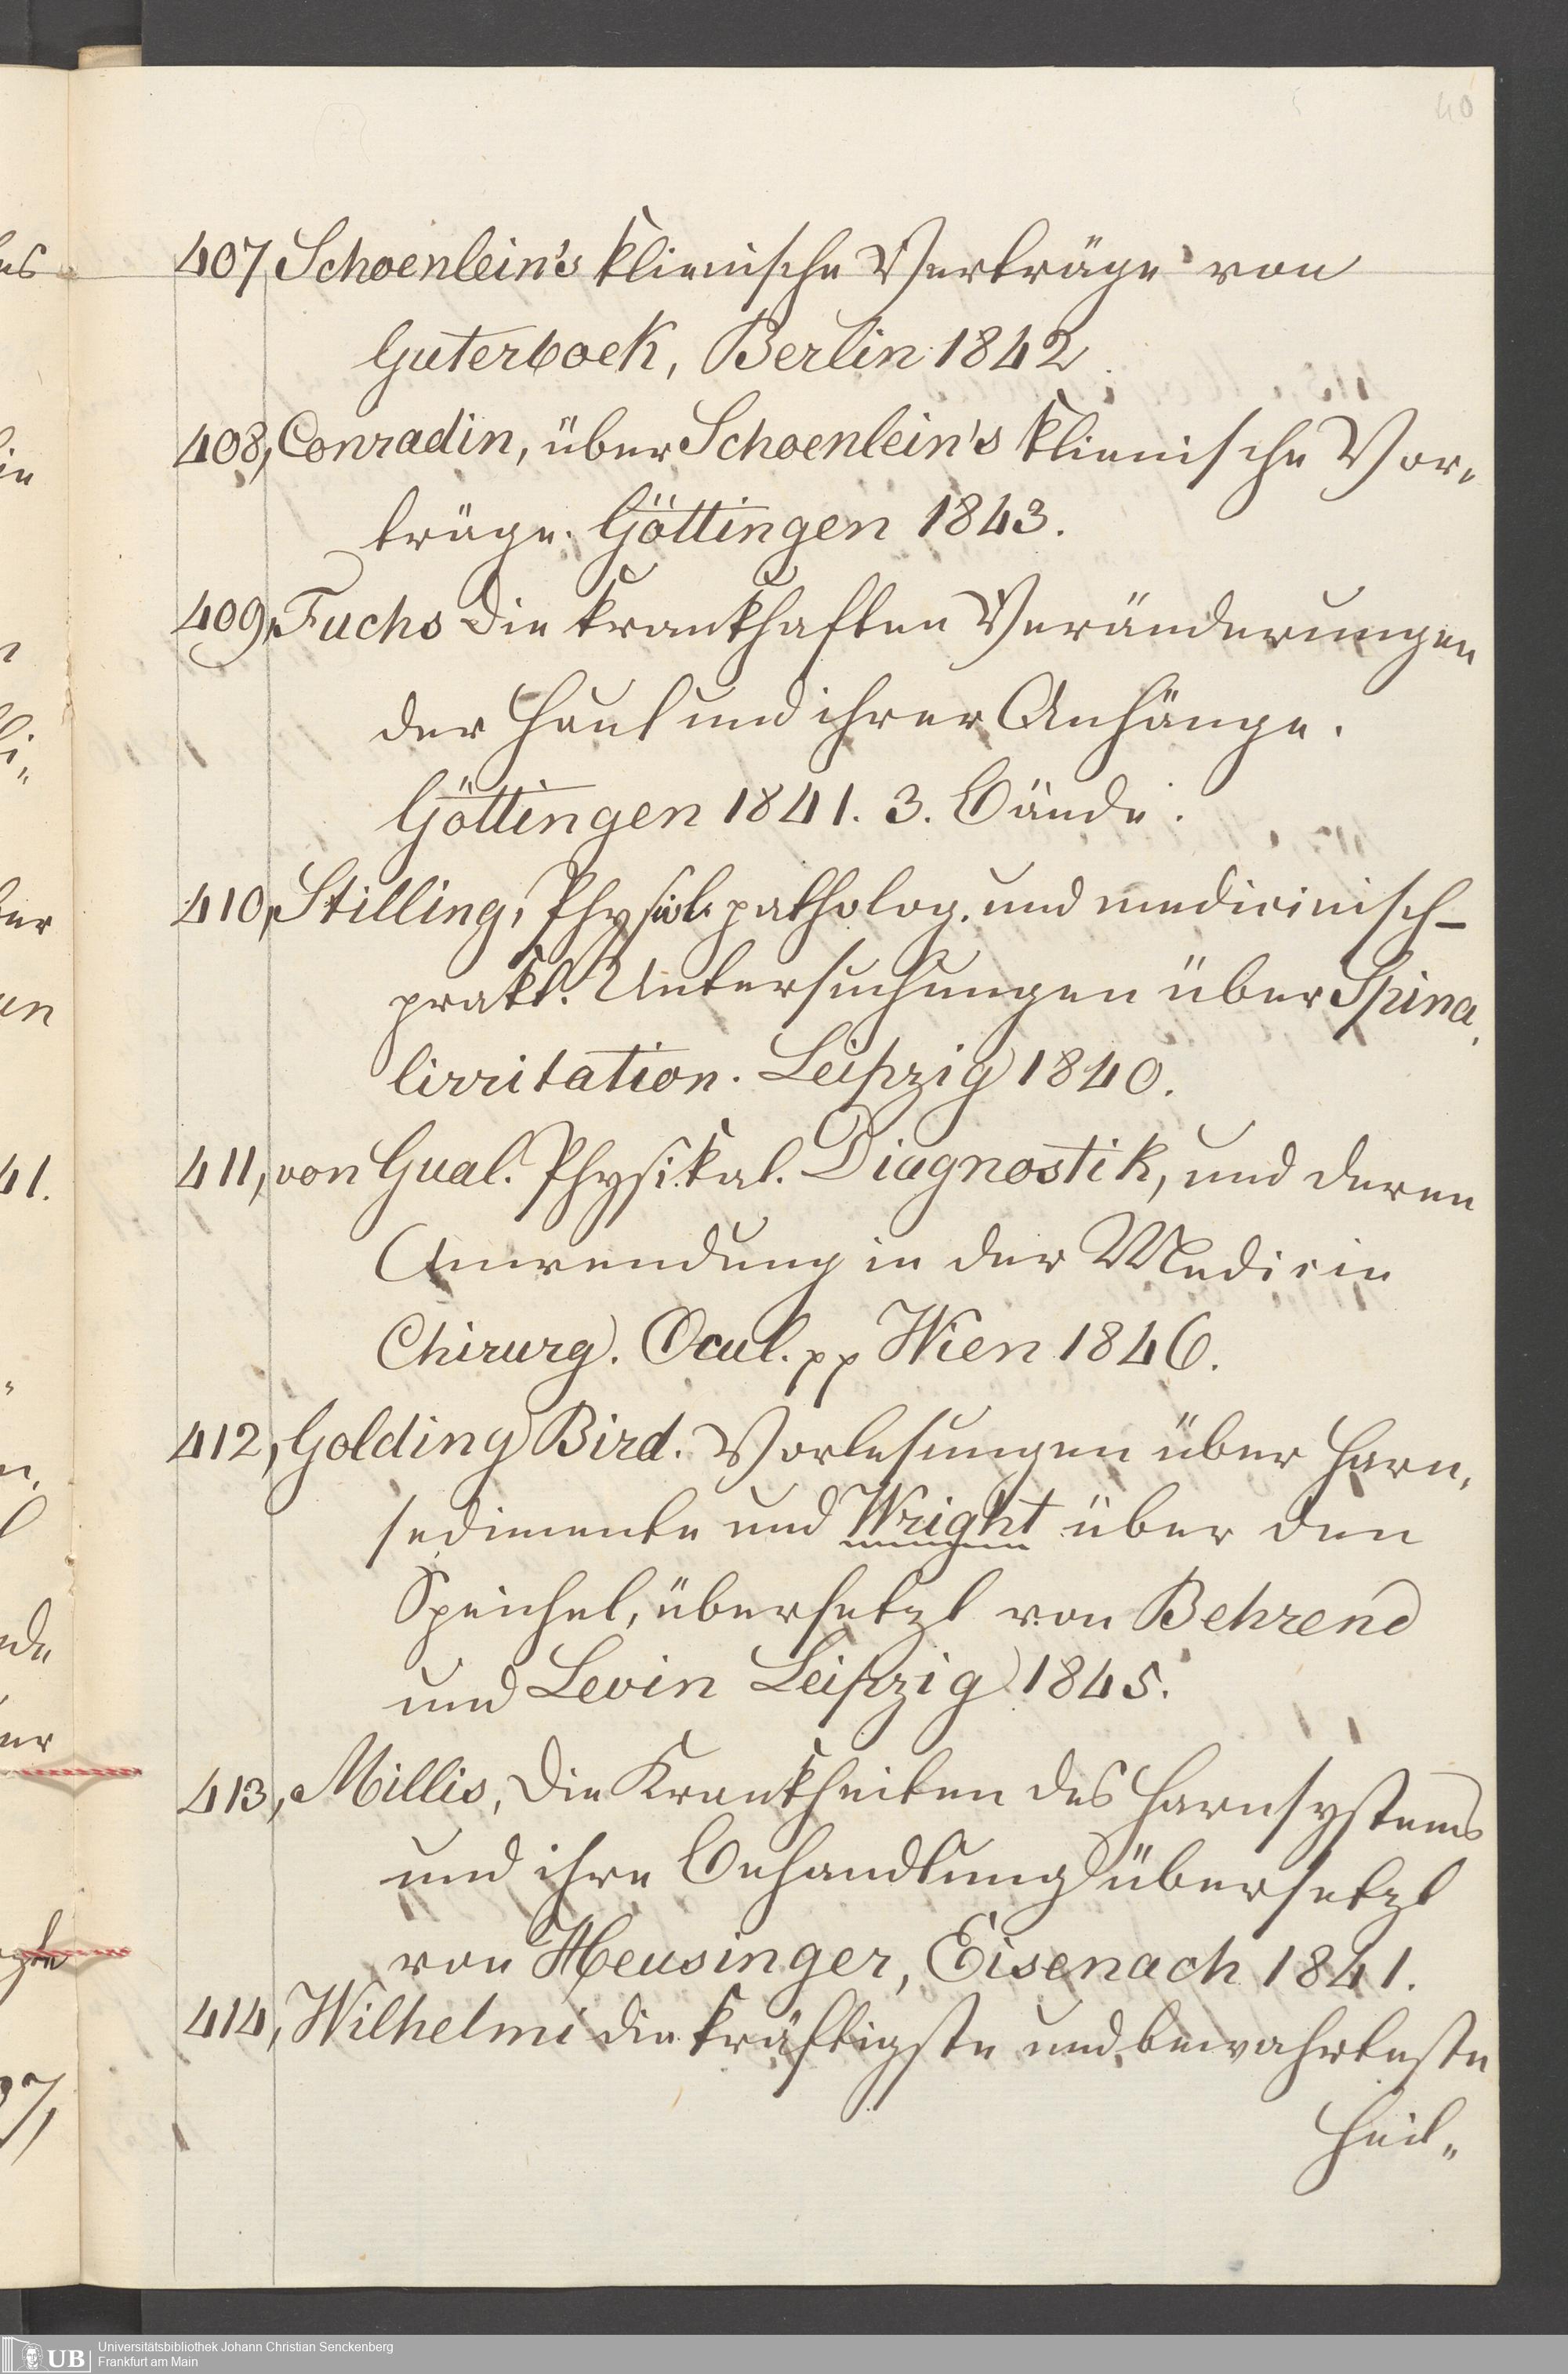 40
407, Schoenlein's klinische Verträge von
Guterbock, Berlin 1842.
408, Conradin, über Schoenlein's klinische Vor„
träge. Göttingen 1843.
409, Fuchs die krankhaften Veränderungen
der Haut und ihrer Anhänge.
Göttingen 1841. 3. Bände.
410, Stilling, Physiol. patholog. und medicinisch-
prakt. Untersuchungen über Spina„
lirritation. Leipzig 1840.
411, von Gual. Physikal. Diagnostik, und deren
Anwendung in der Medicin
Chirurg. Ocul. pp Wien 1846.
412, Golding Bird. Vorlesungen über Harn„
sedimente und Wright über den
Speichel, übersetzt von Behrend
und Levin Leipzig 1845.
413, Millis, die Krankheiten des Harnsystems
und ihre Behandlung übersetzt
von Heusinger, Eisenach 1841.
414, Wilhelmi die kräftigste und bewahrteste
Heil„
UB Universitätsbibliothek Johann Christian Senckenberg
Frankfurt am Main